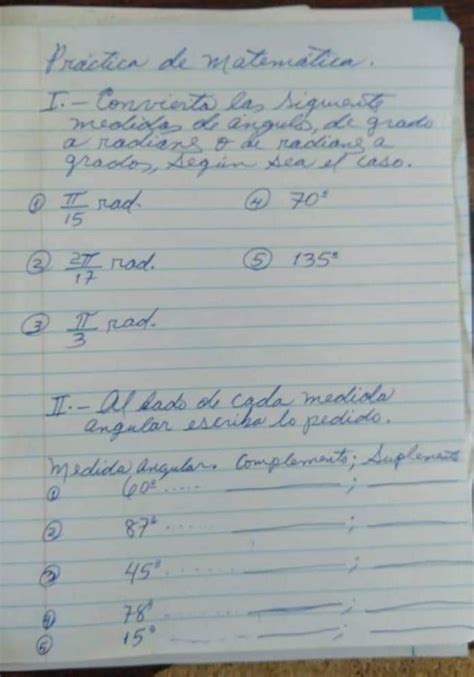 Práctica de Matemática.
I.- Convierta las siguiente
medidas de ángulos, de grado
a radianes o de radianes a
grados, según sea el caso.
① π/15 rad. ④ 70°
② 2π/17 rad. ⑤ 135°
③ π/3 rad.
II.- Al lado de cada medida
angular escriba lo pedido.
Medida angular. Complemento; Suplemento
① 60° ..... ______ ; ______
② 87° ..... ______ ; ______
③ 45° ..... ______ ; ______
④ 78° ..... ______ ; ______
⑤ 15° ..... ______ ; ______